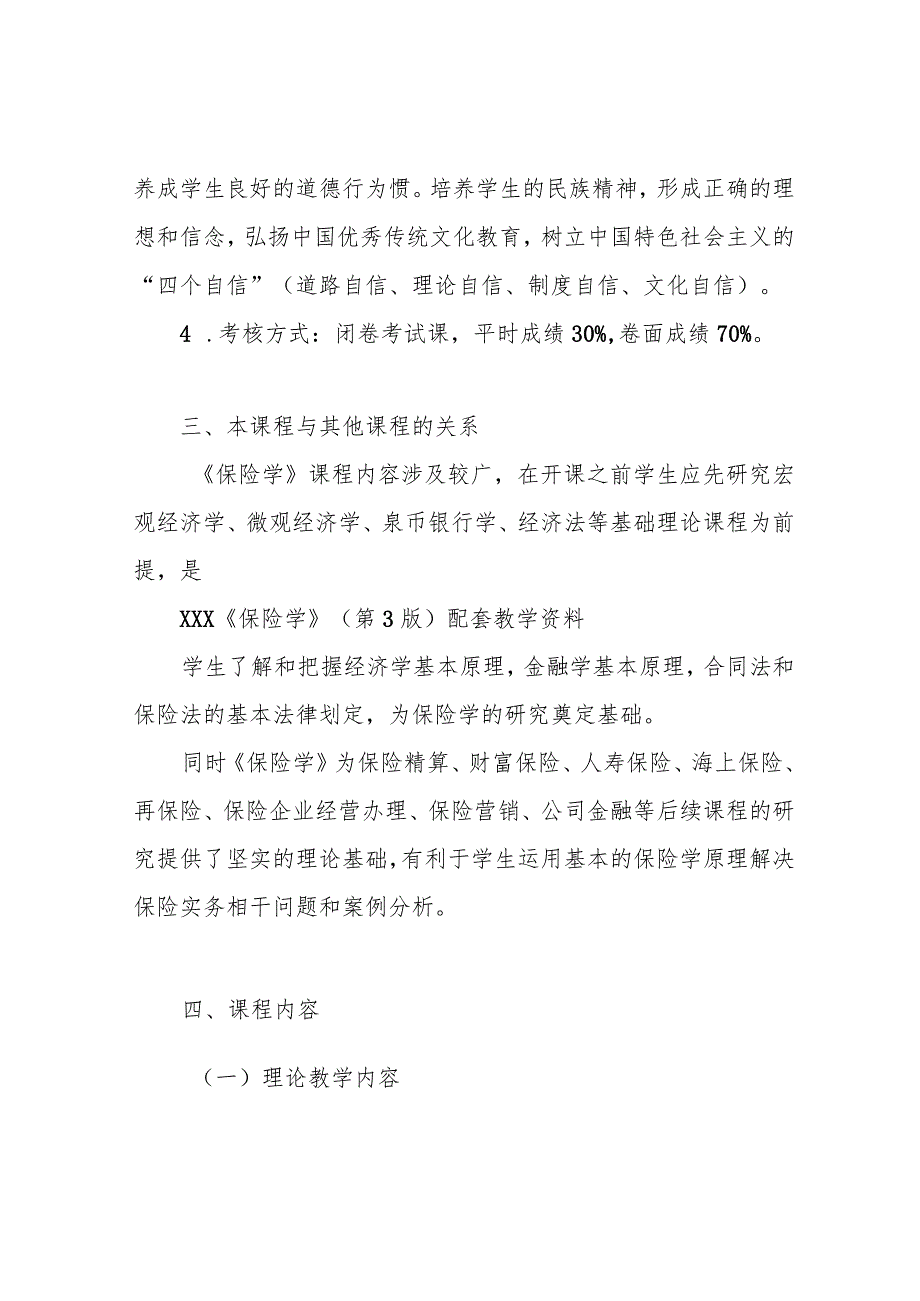 养成学生良好的道德行为惯。培养学生的民族精神，形成正确的理
想和信念，弘扬中国优秀传统文化教育，树立中国特色社会主义的
“四个自信”（道路自信、理论自信、制度自信、文化自信）。
4 .考核方式：闭卷考试课，平时成绩 30%,卷面成绩 70%。
三、本课程与其他课程的关系
《保险学》课程内容涉及较广，在开课之前学生应先研究宏
观经济学、微观经济学、泉币银行学、经济法等基础理论课程为前
提，是
XXX《保险学》（第 3 版）配套教学资料
学生了解和把握经济学基本原理，金融学基本原理，合同法和
保险法的基本法律划定，为保险学的研究奠定基础。
同时《保险学》为保险精算、财富保险、人寿保险、海上保险、
再保险、保险企业经营办理、保险营销、公司金融等后续课程的研
究提供了坚实的理论基础，有利于学生运用基本的保险学原理解决
保险实务相干问题和案例分析。
四、课程内容
（一）理论教学内容